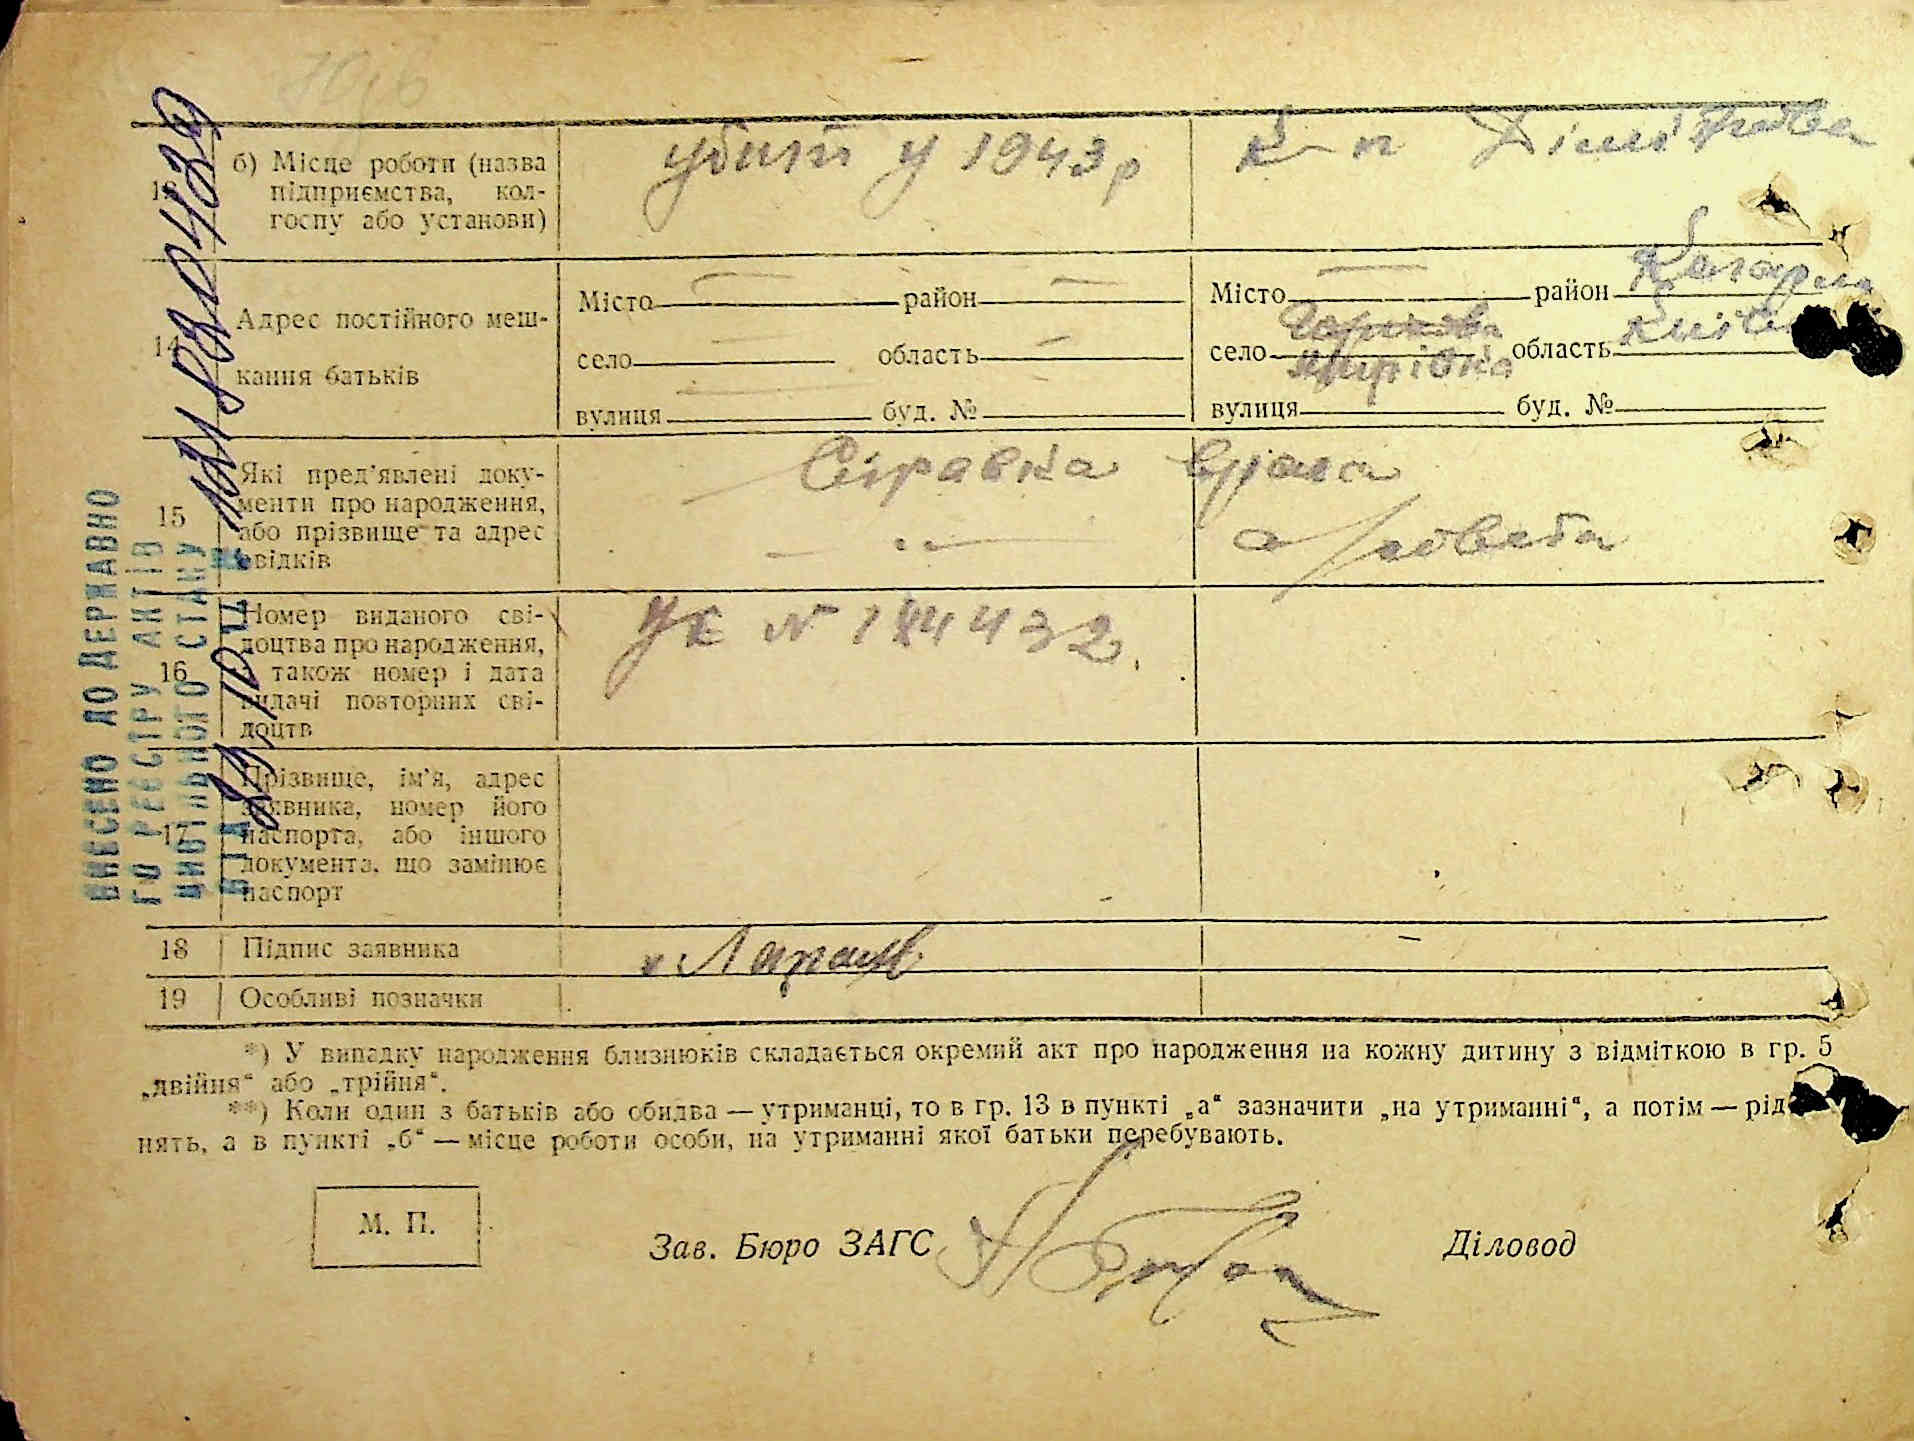 б) Місце роботи (назва
підприємства, кол-
госпу або установи)
убит у 1943 р
к-п Дімітрова
14
Адрес постійного меш-
кання батьків
Місто район
село область
вулиця буд. №
Місто район Кагарли
село Мирівка область Київ
вулиця буд. №
15
Які пред’явлені доку-
менти про народження,
або прізвище та адрес
свідків
Справка врача
16
Номер виданого сві-
доцтва про народження,
також номер і дата
видачі повторних сві-
доцтв
УК №184432.
17
Прізвище, ім’я, адрес
заявника, номер його
паспорта, або іншого
документа, що замінює
паспорт
18 Підпис заявника
19 Особливі позначки
*) У випадку народження близнюків складається окремий акт про народження на кожну дитину з відміткою в гр. 5
„двійня“ або „трійня“.
**) Коли один з батьків або обидва — утриманці, то в гр. 13 в пункті „а“ зазначити „на утриманні“, а потім — рід
нять, а в пункті „б“ — місце роботи особи, на утриманні якої батьки перебувають.
М. П.
Зав. Бюро ЗАГС
Діловод
ВНЕСЕНО ДО ДЕРЖАВНО
ГО РЕЄСТРУ АКТІВ
ЦИВІЛЬНОГО СТАНУ
ВІД №